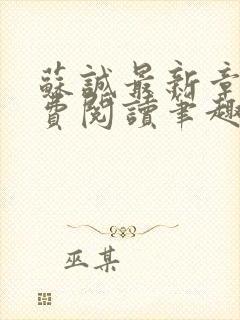 蘇誠最新章
費閱讀筆趣
巫某